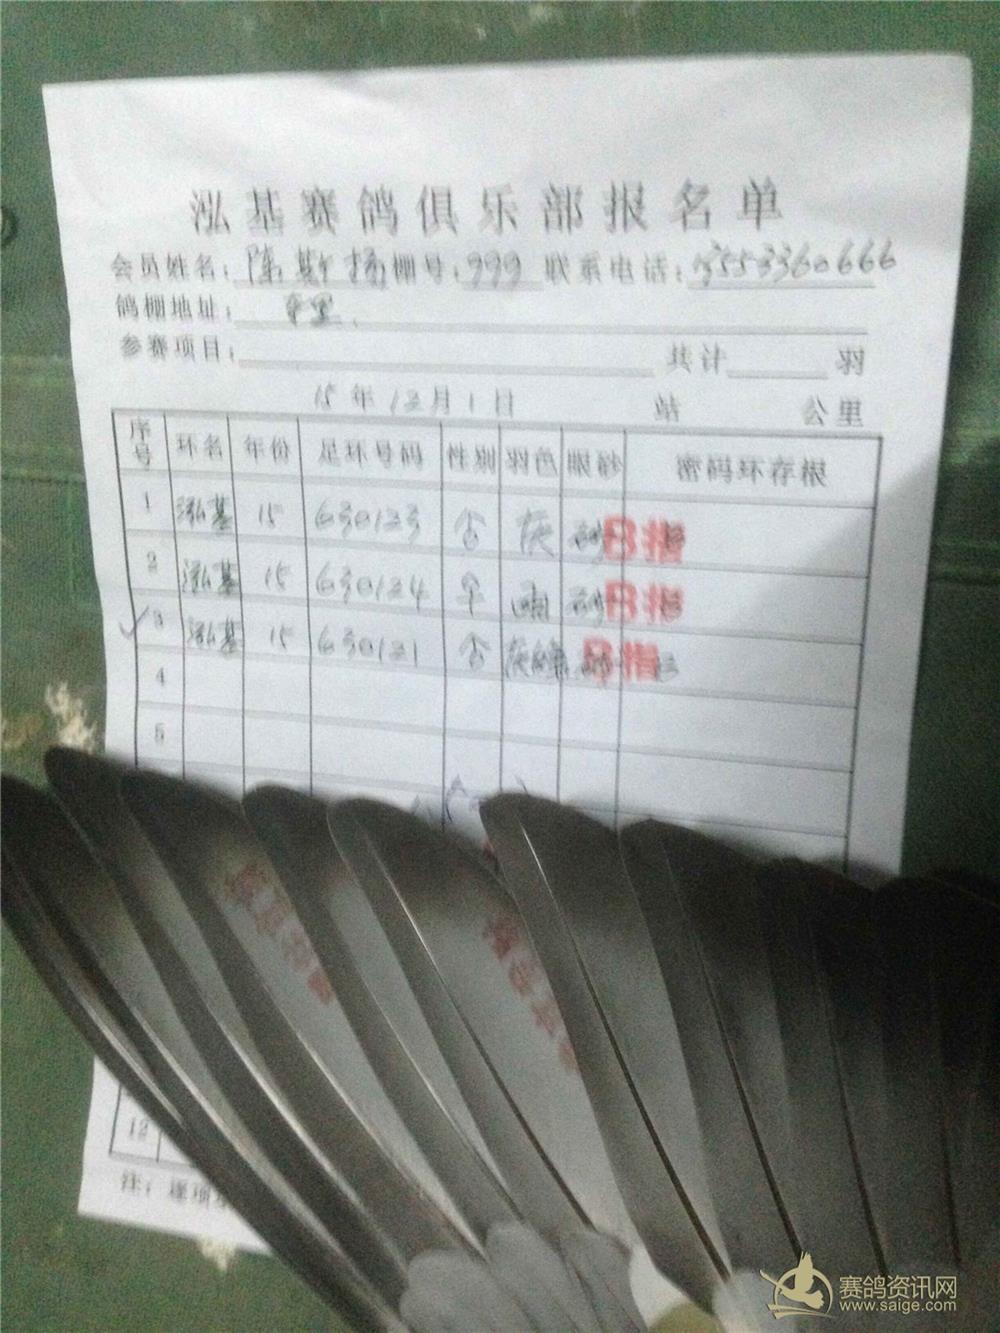 泓基赛鸽俱乐部报名单
会员姓名：陈斯扬 棚号：999 联系电话：13553360666
鸽棚地址：
参赛项目： 共计 羽
15年12月1日 站 公里
序号 环名 年份 足环号码 性别 羽色 眼砂 密码环存根
1 泓基 15 630123 灰 砂 B指
2 泓基 15 630124 雨 砂 B指
3 泓基 15 630121 砂 B指
4
5
12
注：逐项
赛鸽资讯网
www.saige.com